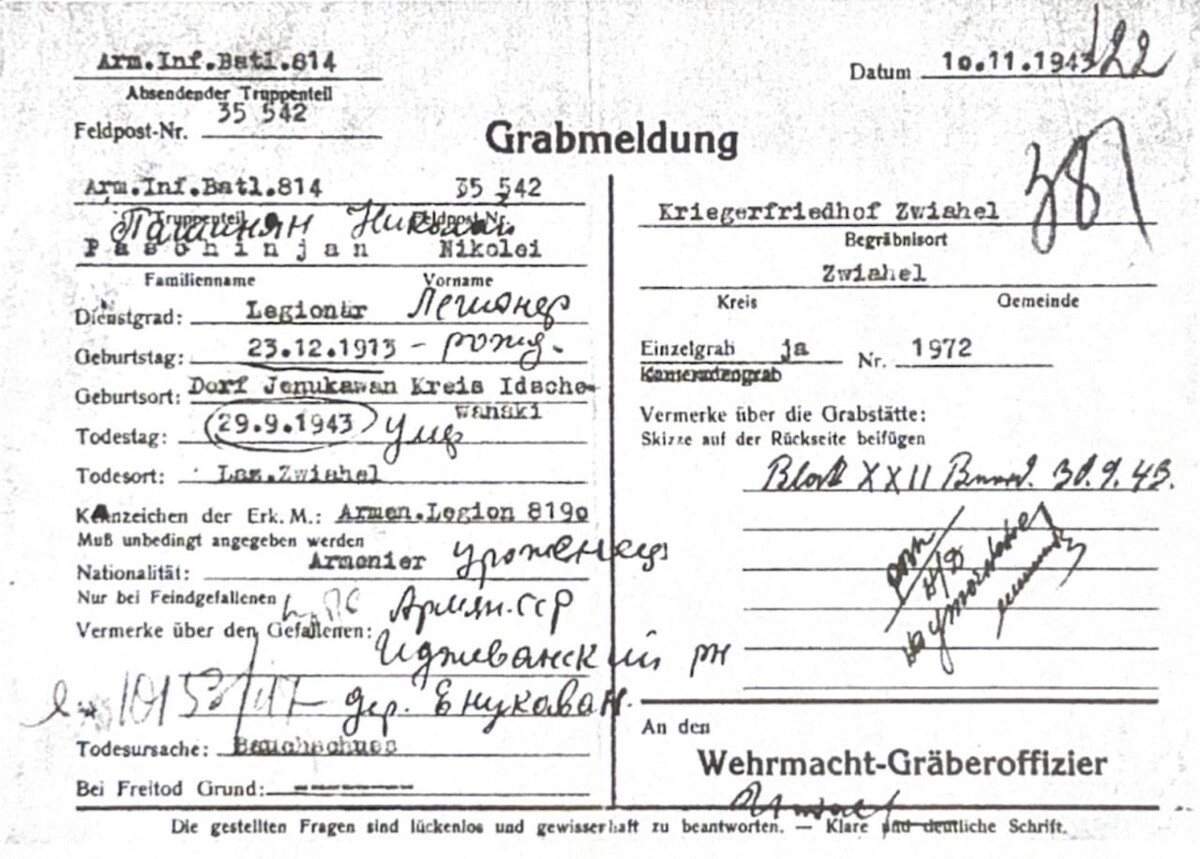 Arm.Inf.Batl.814
Absendender Truppenteil
Feldpost-Nr. 35 542
Datum 10.11.1943
122
Grabmeldung
387
Arm.Inf.Batl.814 35 542
Truppenteil Feldpost-Nr.
Пашинян Николай
Paschinjan Nikolei
Familienname Vorname
Dienstgrad: Legionär Легионер
Geburtstag: 23.12.1913 - рожд.
Geburtsort: Dorf Jenukawan Kreis Idsche-
wanski
Todestag: 29.9.1943 умер
Todesort: Laz.Zwiahel
Kennzeichen der Erk. M.: Armen.Legion 8190
Muß unbedingt angegeben werden
Nationalität: Armenier уроженец
Nur bei Feindgefallenen
Армян. ССР
Vermerke über den Gefallenen:
Иджеванский рн
дер. Енукаван.
Todesursache: Bauchschuss
Bei Freitod Grund: -------
Kriegerfriedhof Zwiahel
Begräbnisort
Zwiahel
Kreis Gemeinde
Einzelgrab ja Nr. 1972
Kameradengrab
Vermerke über die Grabstätte:
Skizze auf der Rückseite beifügen
Block XXII 30.9.43.
An den
Wehrmacht-Gräberoffizier
Die gestellten Fragen sind lückenlos und gewissenhaft zu beantworten. — Klare und deutliche Schrift.